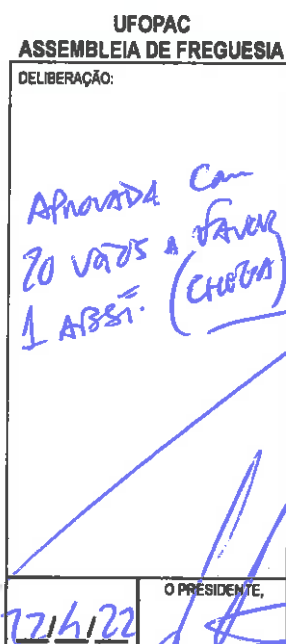 UFOPAC
ASSEMBLEIA DE FREGUESIA
DELIBERAÇÃO:
APROVADA COM
20 VOTOS A FAVOR
1 ABST. (CHEGA)
O PRESIDENTE,
22/4/22